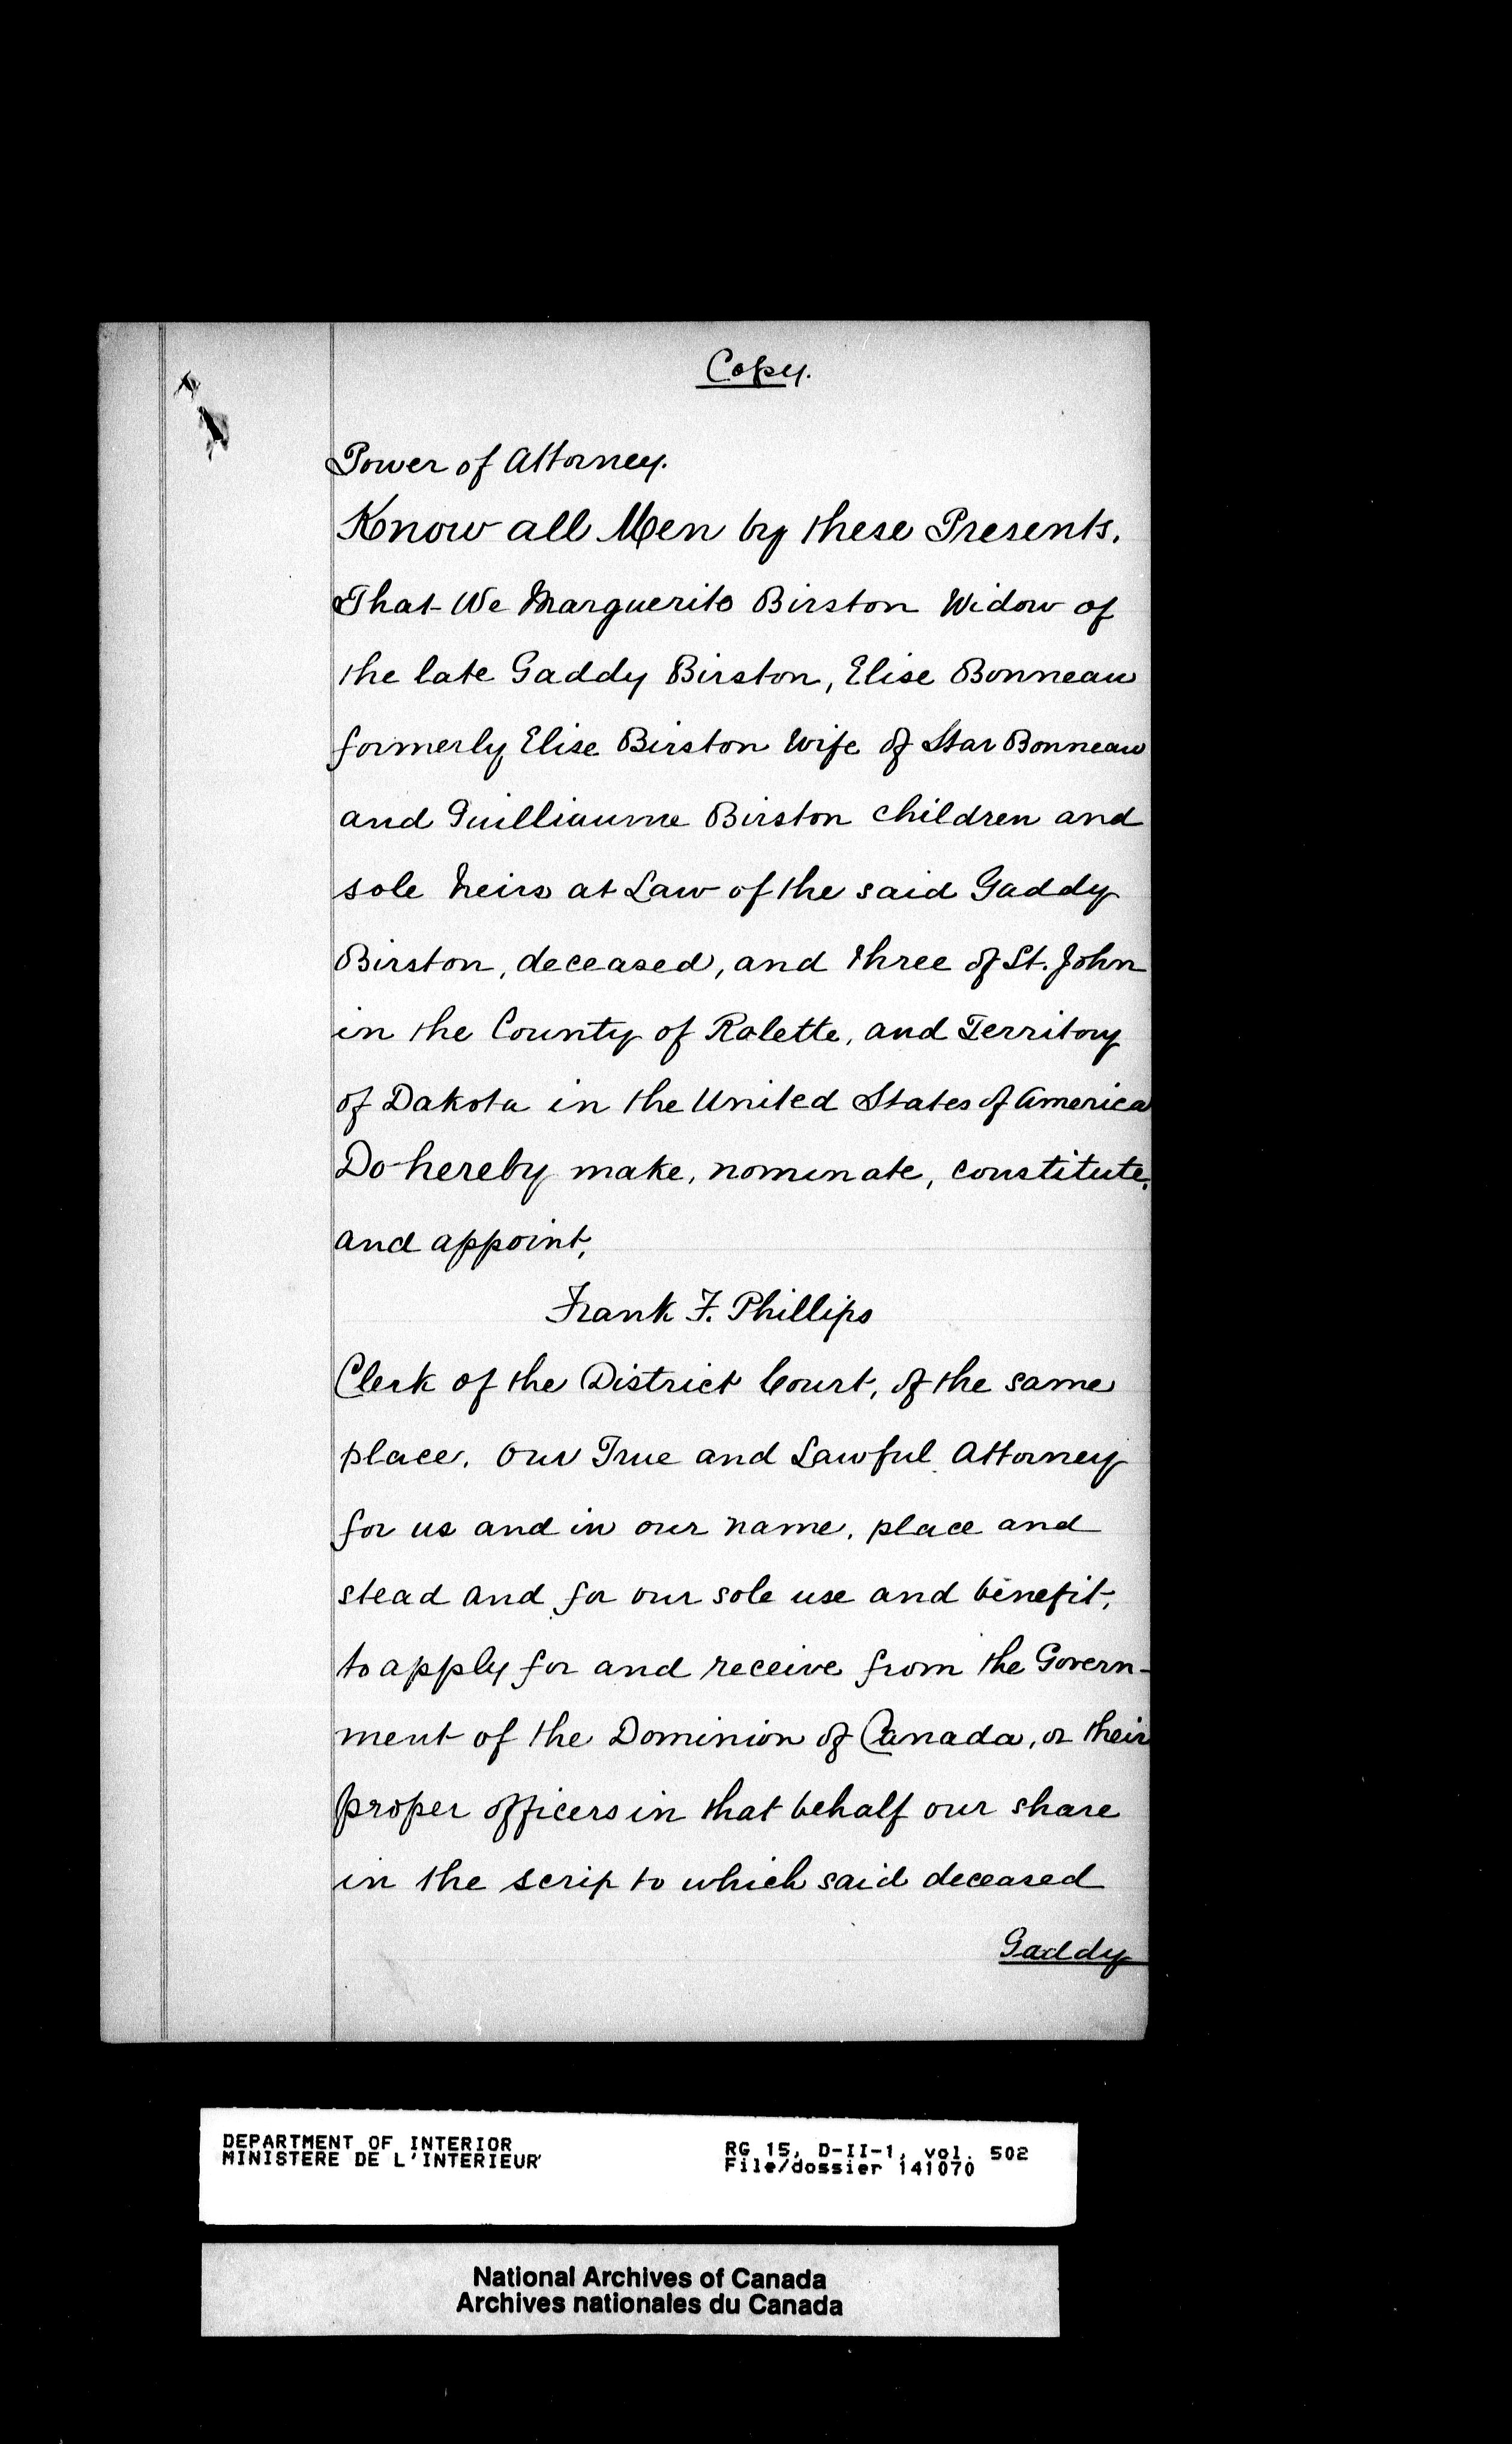 Copy.
Power of Attorney.
Know all Men by these Presents.
That We Marguerite Birston Widow of
the late Gaddy Birston, Elise Bonneau
formerly Elise Birston Wife of Star Bonneau
and Guilliaume Birston children and
sole heirs at Law of the said Gaddy
Birston, deceased, and three of St. John
in the County of Rolette, and Territory
of Dakota in the United States of America
Do hereby make, nominate, constitute,
and appoint,
Frank F. Phillips
Clerk of the District Court, of the same
place. Our True and Lawful Attorney
for us and in our name, place and
stead and for our sole use and benefit,
to apply for and receive from the Govern-
ment of the Dominion of Canada, or their
proper officers in that behalf our share
in the scrip to which said deceased
Gaddy
DEPARTMENT OF INTERIOR
MINISTERE DE L'INTERIEUR
RG 15, D-II-1, vol. 502
File/dossier 141070
National Archives of Canada
Archives nationales du Canada